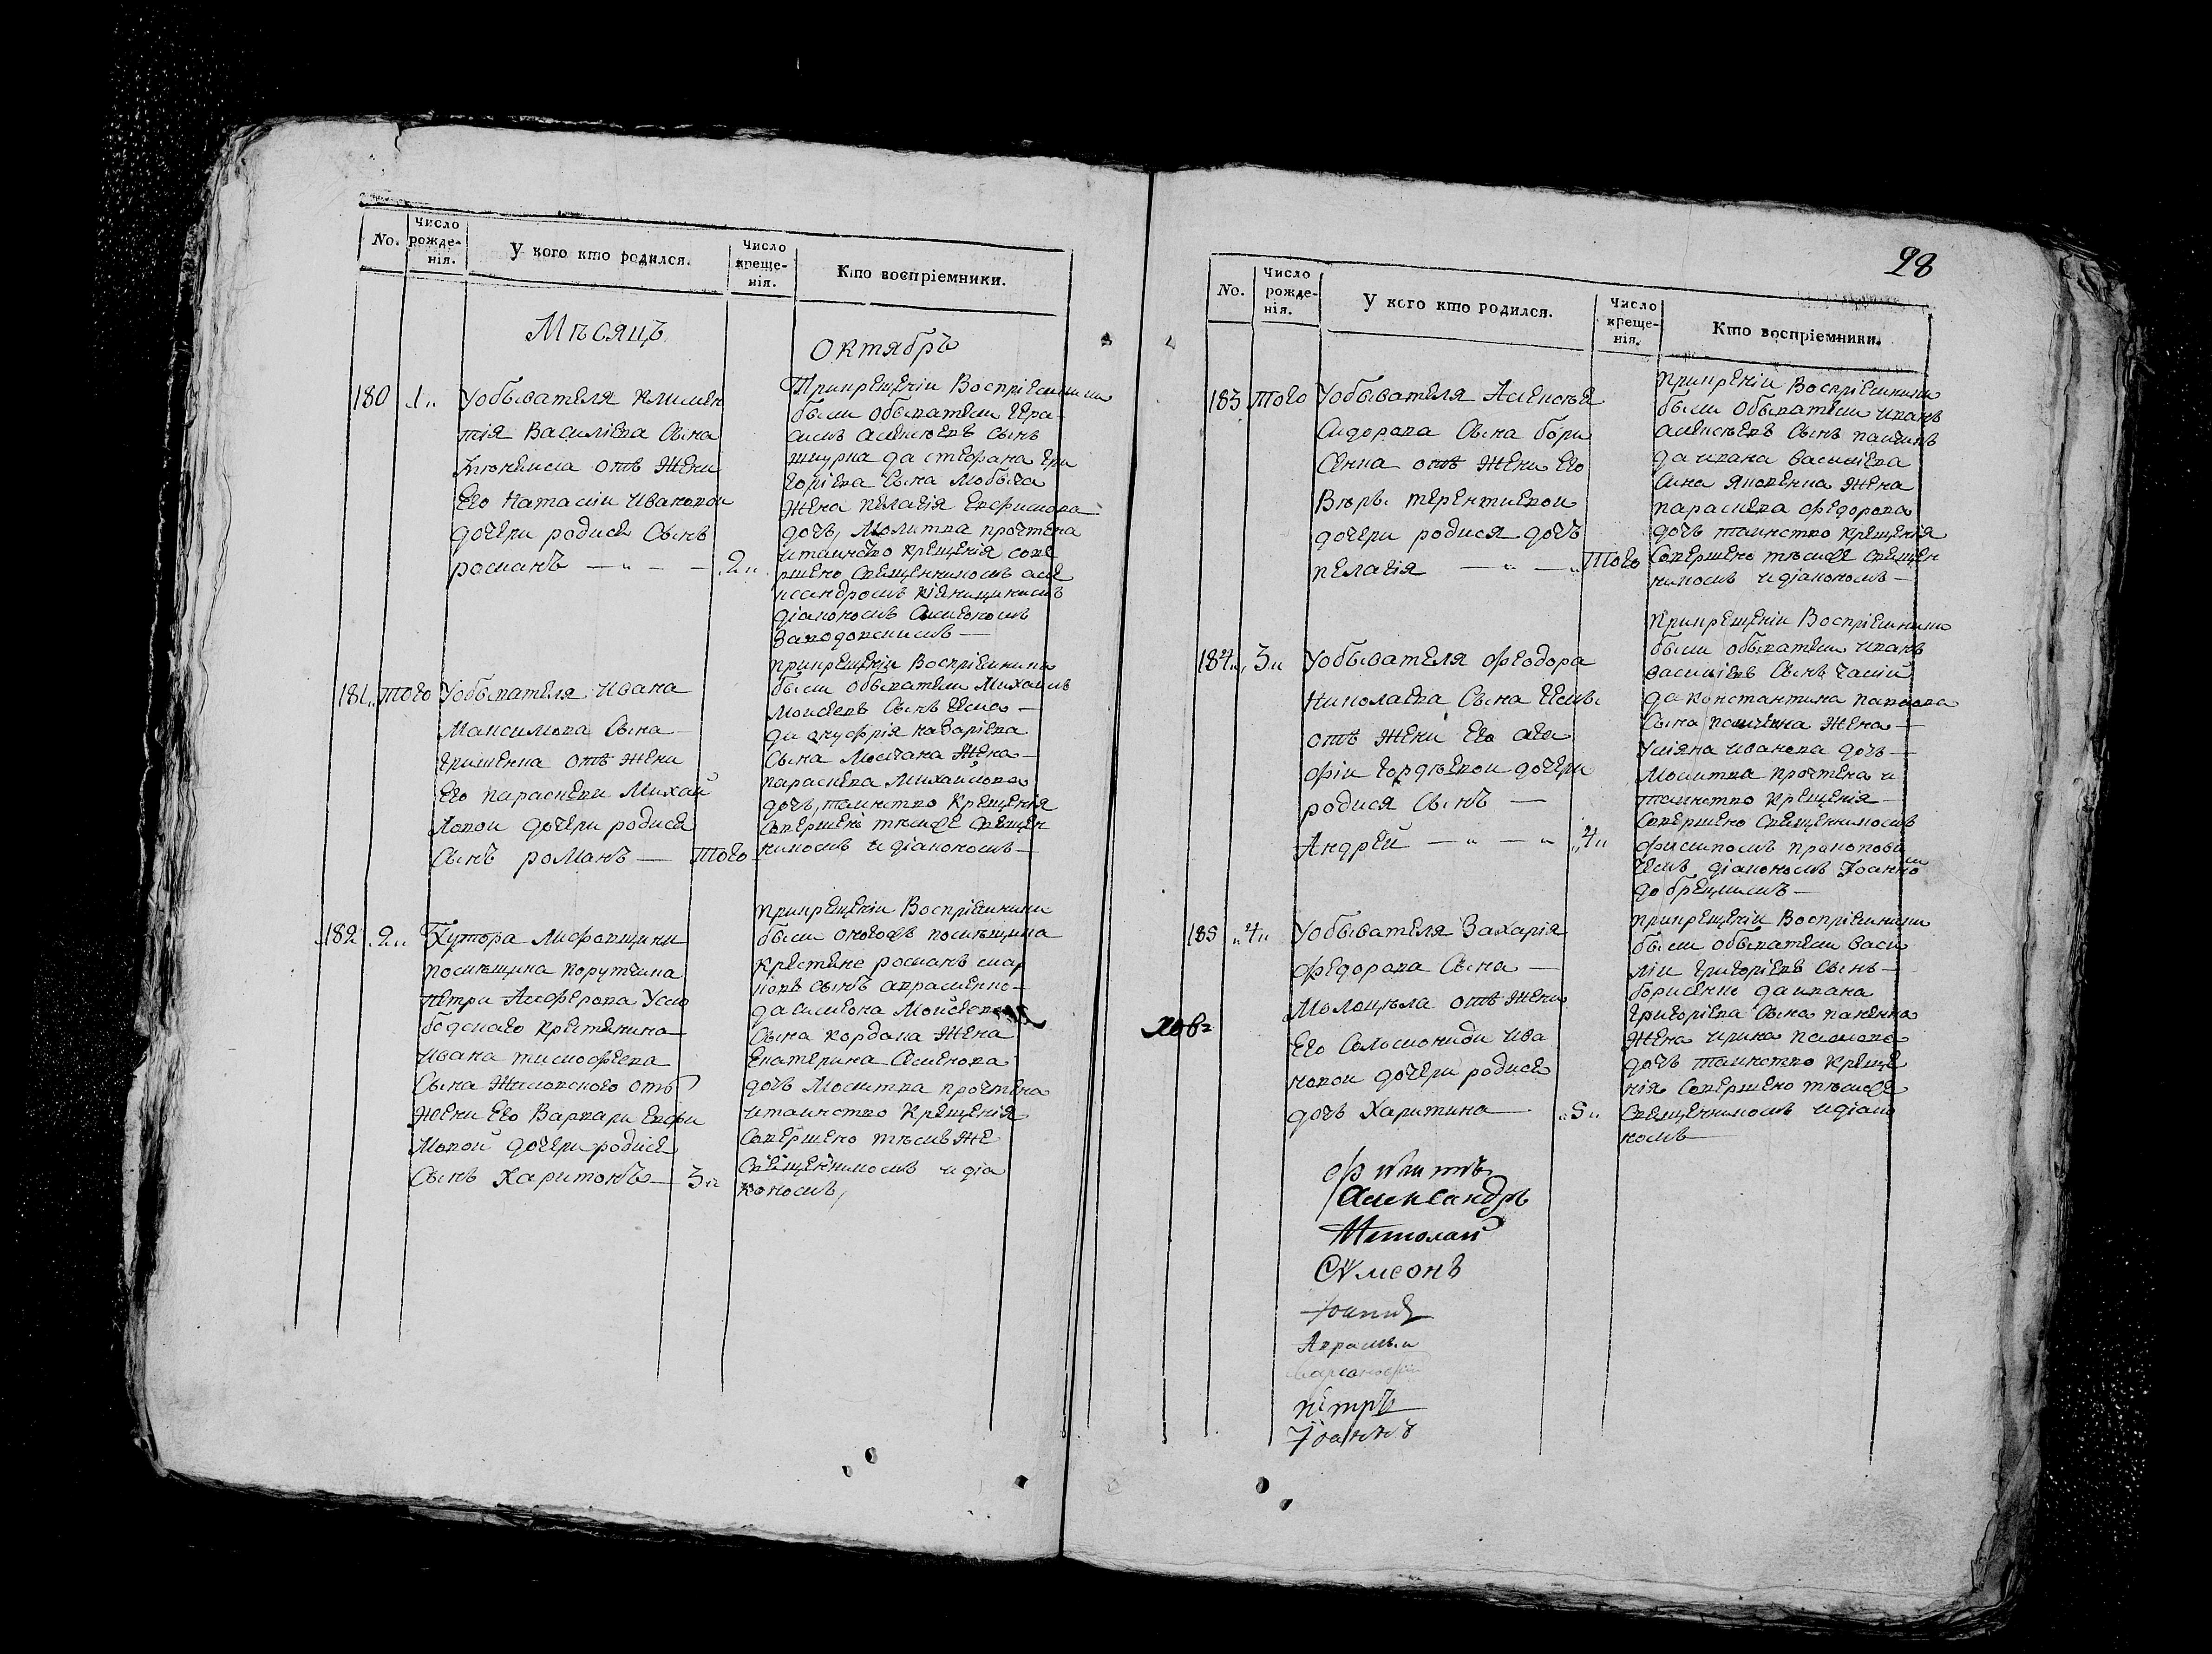 No.
Число рожде-нія.
У кого кто родился.
Число креще-нія.
Кто воспріемники.
Мѣсяцъ
Октябрь
180 1
У обывателя Климен
тія Василіева Сына
отъ Жени
Его Наталіи Ивановои
дочери родися Сынъ
романъ 2
При крещеніи Воспріемники
были обыватели Гера
симъ алексѣевъ сынъ
шкурка да стефана гри
горіева Сына
Жена пелагія Евфимова
дочь, Молитва прочтена
и таинство крещенія сове
ршено Священникомъ але
ксандромъ
діакономъ Симеономъ
181 того
У обывателя Ивана
Максимова Сына
Гришенка отъ Жени
Его параскеви Михай
ловои дочери родися
Сынъ роМанъ того
При крещеніи Воспріемники
были обыватели Михаилъ
Моисеевъ Сынъ
да онуфрія назаріева
Сына Мовчана Жена
параскева Михайлова
дочь, таинство Крещенія
Совершено тѣмъже Священ
никомъ и діакономъ
182 2
Хутора
помѣщика порутчика
петра Алферова
Крестянина
Ивана тимофеева
Сына отъ
Жени Его Варвари Евфи
Мовои дочери родися
Сынъ Харитонъ 3
При крещеніи Воспріемники
были оногожъ помѣщика
Крестяне романъ
сынъ авраменко
да симеона Мойсеева
Сына кордана Жена
Екатерина Семенова
дочь Молитва прочтена
и таинство Крещенія
Совершено тѣмъ Же
Священникомъ и діа
кономъ
98
No.
Число рожде-нія.
У кого кто родился.
Число креще-нія.
Кто воспріемники.
183 того
У обывателя Алексѣя
Сидорова Сына бори
сенка отъ Жени Его
Вѣры терентиевои
дочери родися дочь
пелагія того
При креніи Воспріемники
были Обыватели иванъ
алексѣевъ Сынъ
да ивана василіева
Сина Яковенка Жена
параскева федорова
дочь таинство крещенія
Совершено тѣмже Священ
никомъ и діакономъ
184 3
У обывателя Феодора
Николаева Сына
отъ Жени Его ага
фіи гордѣевои дочери
родися Сынъ
Андрей 4
При крещеніи Воспріемники
были обыватели иванъ
василіевъ Сынъ
да константина
Сына Жена
Уліяна иванова дочь
Молитва прочтена и
таинство Крещенія
Совершено Священникомъ
филипомъ прокопови
чемъ діакономъ Іоанно
185 4
У обывателя Захарія
федорова Сына
отъ Жени
Его Соломониди Ива
новои дочери родися
дочь Харитина 5
При крещеніи Воспріемники
были обыватели васи
лій григоріевъ Сынъ
борисенко да ивана
григоріева Сына
Жена ирина
дочь таинство Креще
нія Совершено тѣмже
Священникомъ и діако
номъ
Александръ
Николай
Сѵмеонъ
петръ
Іоаннъ